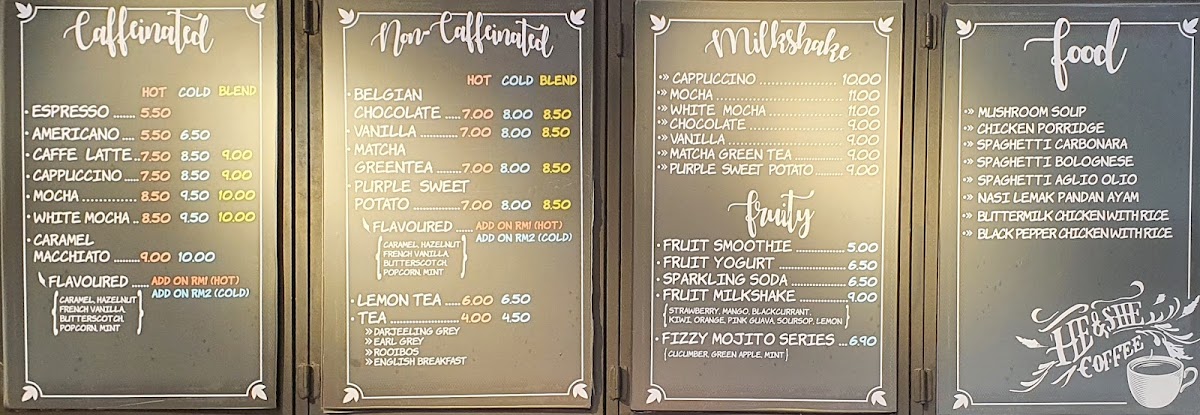 Caffeinated
HOT COLD BLEND
· ESPRESSO ...... 5.50
· AMERICANO ..... 5.50 6.50
· CAFFE LATTE .. 7.50 8.50 9.00
· CAPPUCCINO ..... 7.50 8.50 9.00
· MOCHA .............. 8.50 9.50 10.00
· WHITE MOCHA .. 8.50 9.50 10.00
· CARAMEL
MACCHIATO ...... 9.00 10.00
FLAVOURED ..... ADD ON RM1 (HOT)
ADD ON RM2 (COLD)
{CARAMEL, HAZELNUT
FRENCH VANILLA,
BUTTERSCOTCH,
POPCORN, MINT}
Non-Caffeinated
HOT COLD BLEND
· BELGIAN
CHOCOLATE ..... 7.00 8.00 8.50
· VANILLA .......... 7.00 8.00 8.50
· MATCHA
GREENTEA ...... 7.00 8.00 8.50
· PURPLE SWEET
POTATO .......... 7.00 8.00 8.50
FLAVOURED ..... ADD ON RM1 (HOT)
ADD ON RM2 (COLD)
{CARAMEL, HAZELNUT
FRENCH VANILLA,
BUTTERSCOTCH,
POPCORN, MINT}
· LEMON TEA .... 6.00 6.50
· TEA ................ 4.00 4.50
» DARJEELING GREY
» EARL GREY
» ROOIBOS
» ENGLISH BREAKFAST
Milkshake
·» CAPPUCCINO ..................... 10.00
·» MOCHA ............................. 11.00
·» WHITE MOCHA .................. 11.00
·» CHOCOLATE ...................... 9.00
·» VANILLA ........................... 9.00
·» MATCHA GREEN TEA .......... 9.00
·» PURPLE SWEET POTATO ..... 9.00
fruity
· FRUIT SMOOTHIE .............. 5.00
· FRUIT YOGURT ................. 6.50
· SPARKLING SODA .............. 6.50
· FRUIT MILKSHAKE ............. 9.00
{STRAWBERRY, MANGO, BLACKCURRANT,
KIWI, ORANGE, PINK GUAVA, SOURSOP, LEMON}
· FIZZY MOJITO SERIES ... 6.90
{CUCUMBER, GREEN APPLE, MINT}
food
·» MUSHROOM SOUP
·» CHICKEN PORRIDGE
·» SPAGHETTI CARBONARA
·» SPAGHETTI BOLOGNESE
·» SPAGHETTI AGLIO OLIO
·» NASI LEMAK PANDAN AYAM
·» BUTTERMILK CHICKEN WITH RICE
·» BLACK PEPPER CHICKEN WITH RICE
HE & SHE
COFFEE